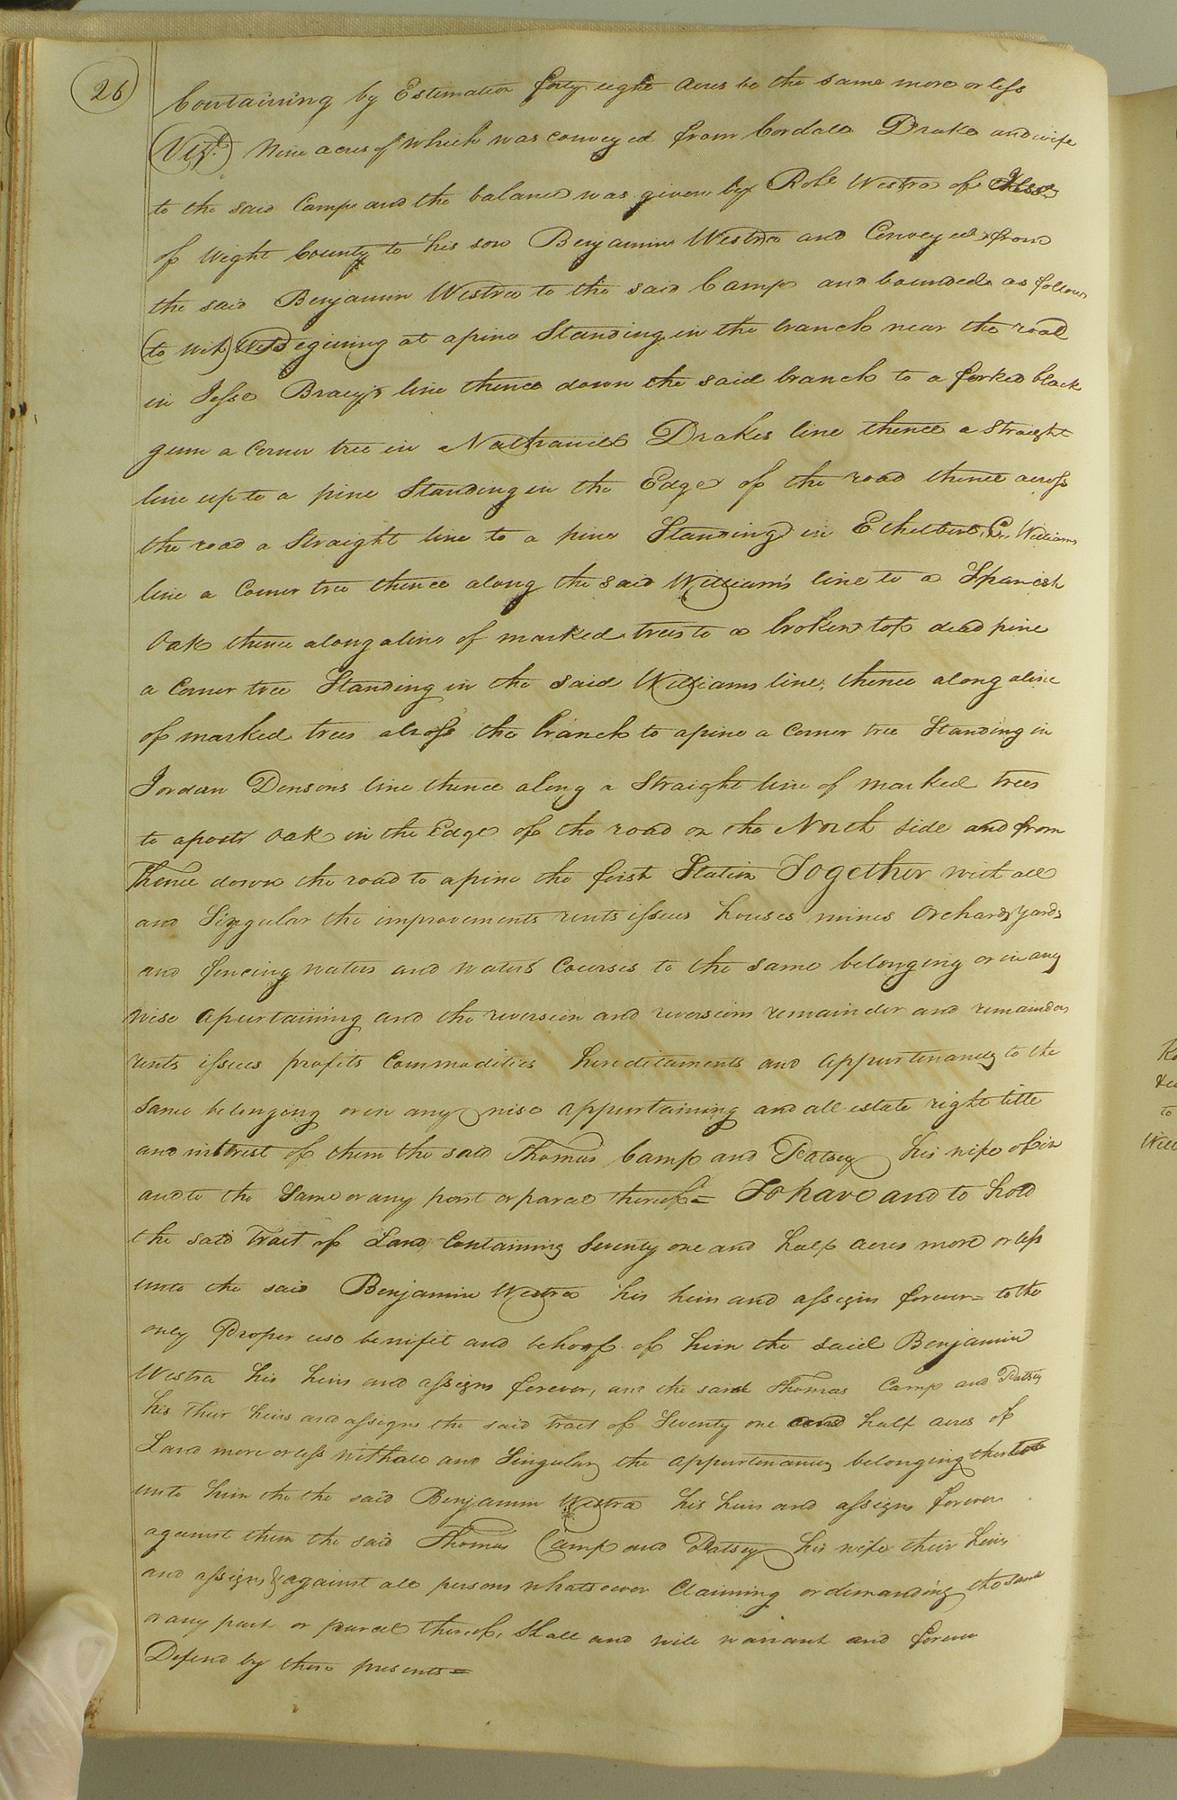 26
Containing by Estimation forty eight acres be the same more or less
(Viz.) Nine acres of which was conveyed from Cordala Drake and wife
to the said Camp and the balance was given by Robt Westra of
of Wight County to his son Benjamin Westra and Conveyed from
the said Benjamin Westra to the said Camp and bounded as follows
(to wit) Begining at a pine Standing in the branch near the road
in Jesse Bracy's line thence down the said branch to a forked black
gum a Corner tree in Nathaniel Drakes line thence a Straight
line up to a pine Standing in the Edge of the road thence across
the road a Straight line to a pine Standing in Ethelbert C. Williams
line a Corner tree thence along the said William's line to a Spanish
Oak thence along a line of marked trees to a broken top dead pine
a Corner tree Standing in the said Williams line, thence along a line
of marked trees across the branch to a pine a Corner tree Standing in
Jordan Densons line thence along a Straight line of marked trees
to a post Oak in the Edge of the road on the North side and from
thence down the road to a pine the first Station Together with all
and Singular the improvements rents issues houses mines Orchards yards
and fencing waters and waters Courses to the same belonging or in any
wise apurtaining and the reversion and reversions remainder and remainders
rents issues profits Commodities hereditaments and appurtenances to the
same belonging or in any wise appurtaining and all estate right title
and interest of them the said Thomas Camp and Patsey his wife of in
and to the Same or any part or parcel thereof = To have and to hold
the said Tract of Land Containing Seventy one and half acres more or less
unto the said Benjamin Westra his heirs and assigns forever = to the
only Proper use benifit and behoof of him the said Benjamin
Westra his heirs and assigns forever, and the said Thomas Camp and Patsey
his their heirs and assigns the said Tract of Seventy one and half acres of
Land more or less with all and Singular the appurtenances belonging thereto
unto him the the said Benjamin Westra his heirs and assigns forever
against them the said Thomas Camp and Patsey his wife their heirs
and assigns & against all persons whatsoever Claiming or demanding the same
or any part or parcel thereof, Shall and will warrant and forever
Defend by these presents =
to